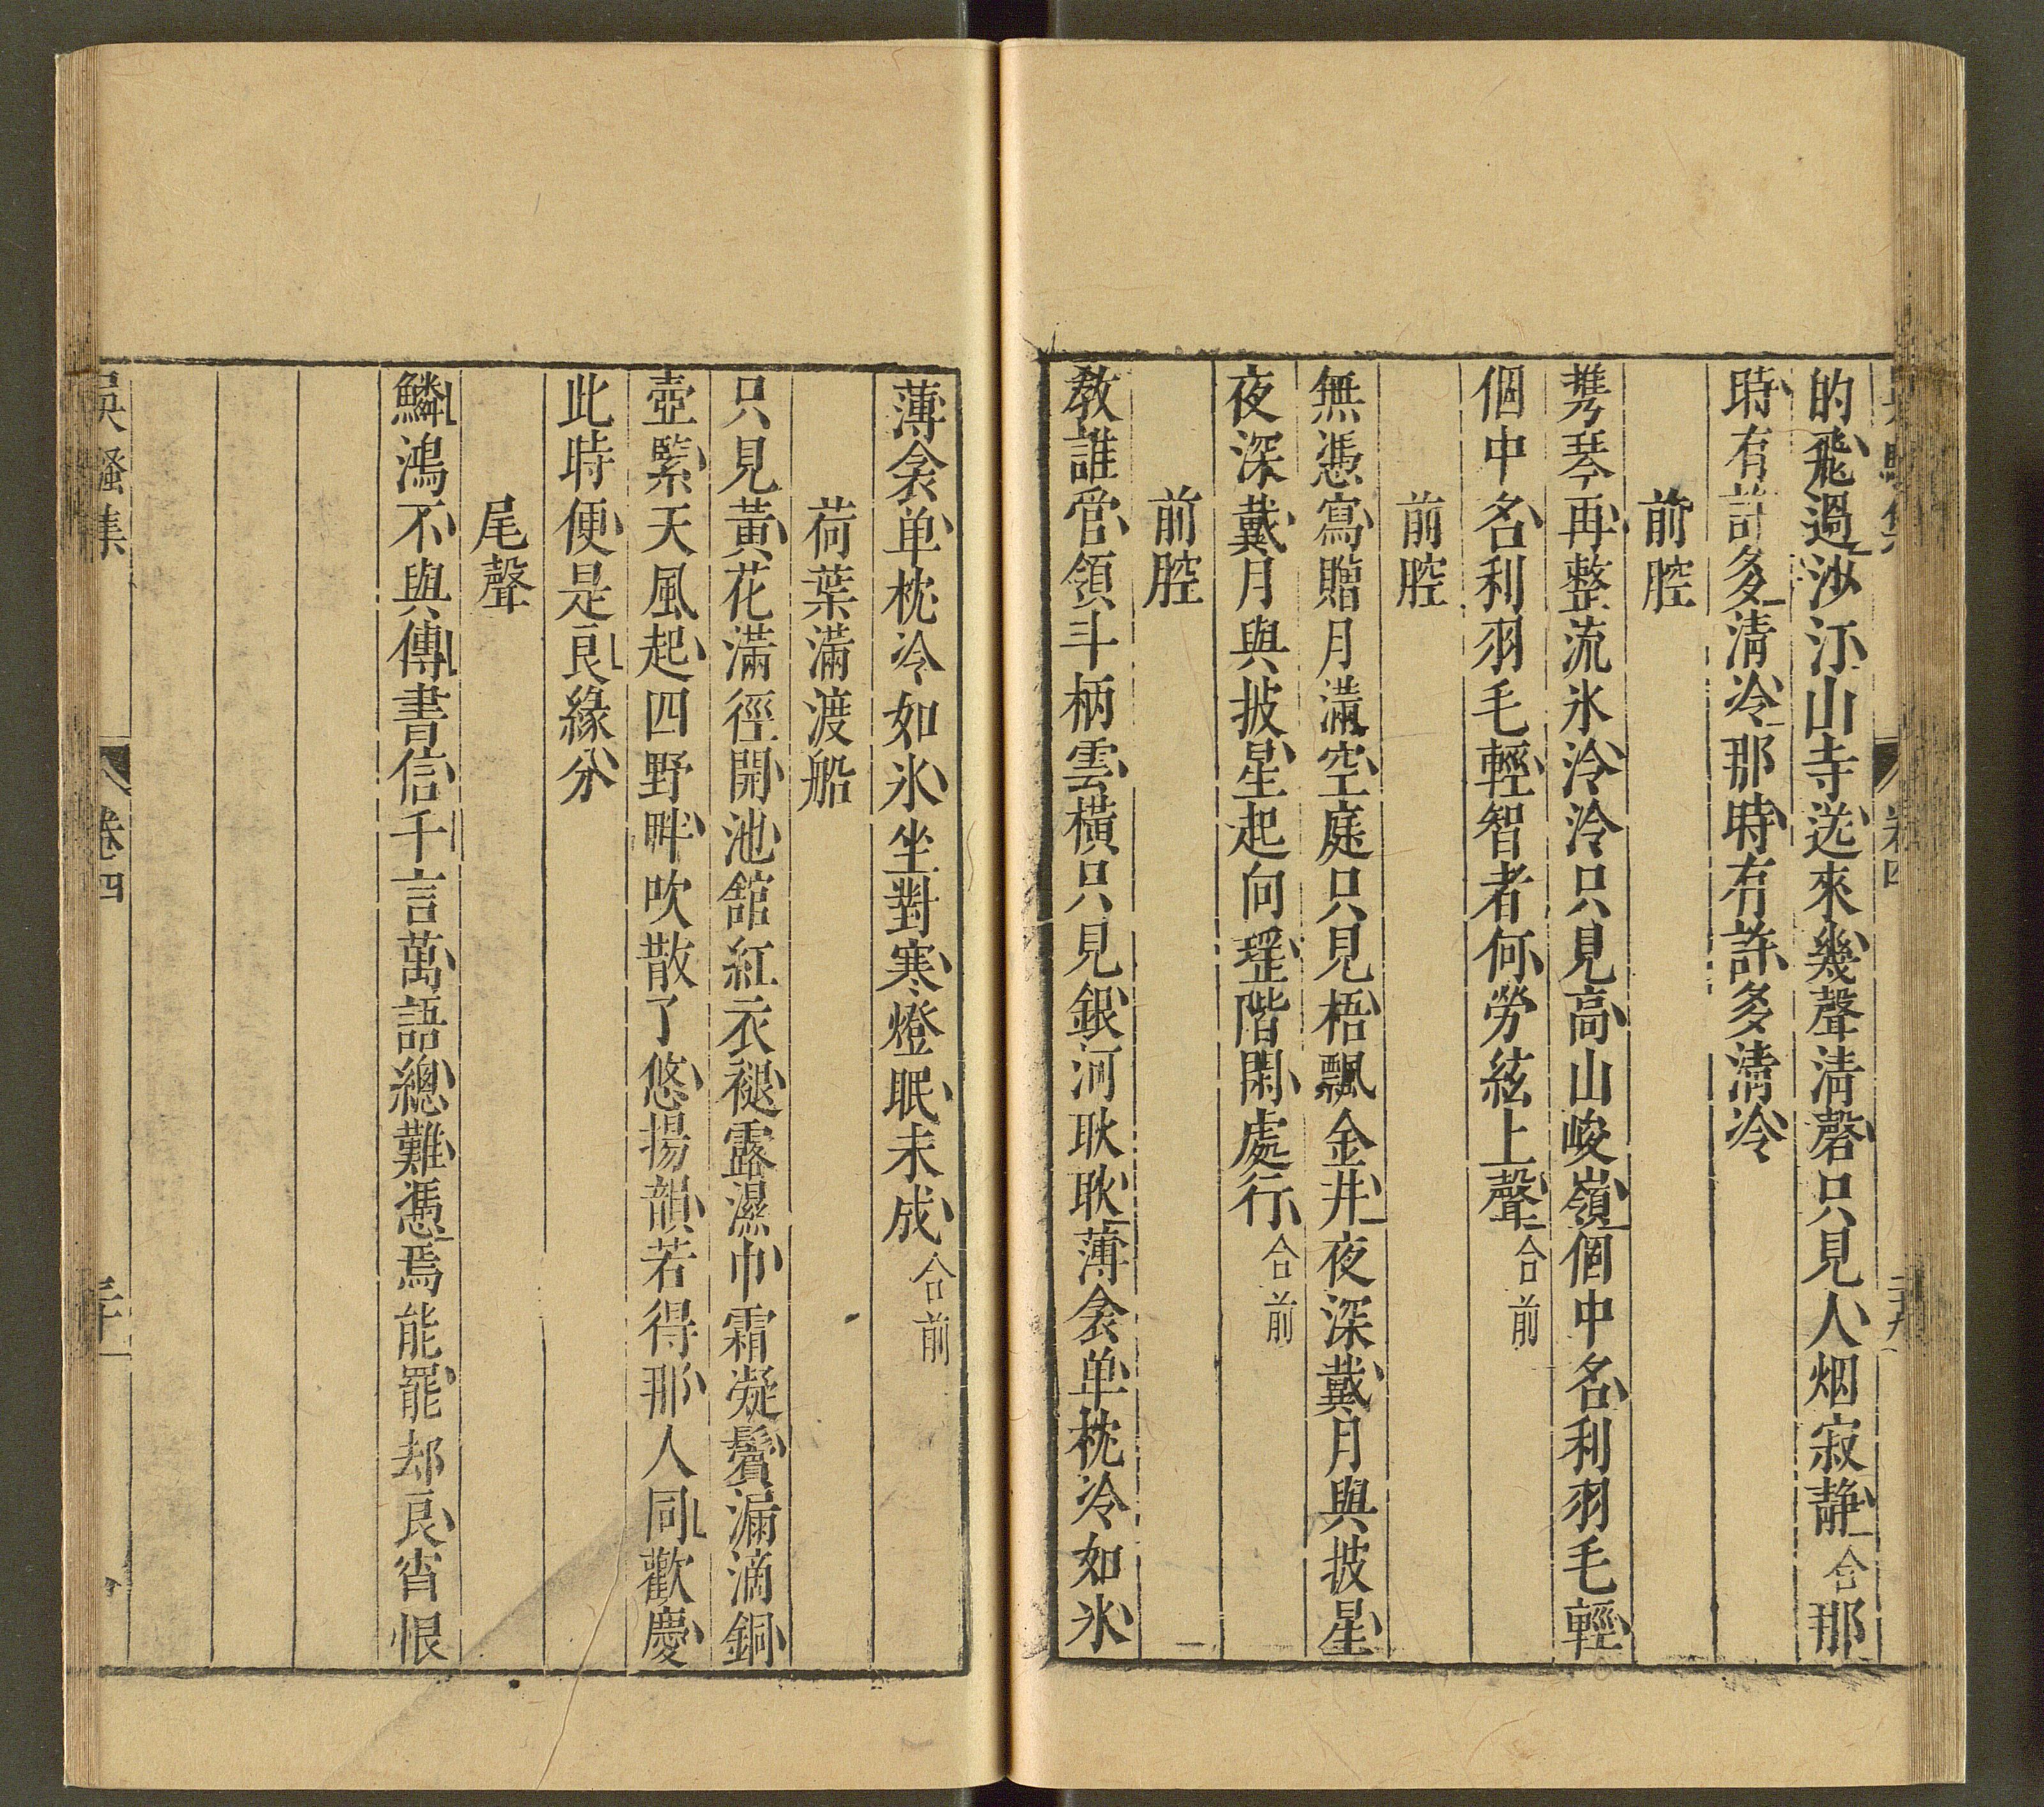 的飛過沙汀山寺送來幾聲清磬只見人烟寂靜合那
時有許多清冷那時有許多清冷
前腔
携琴再整流氷泠泠只見高山峻嶺個中名利羽毛輕
個中名利羽毛輕智者何勞絃上聲合前
前腔
無憑寫贈月滿空庭只見梧飄金井夜深戴月與披星
夜深戴月與披星起向瑤階閑處行合前
前腔
教誰管領斗柄雲橫只見銀河耿耿薄衾单枕冷如氷
薄衾单枕冷如氷坐對寒燈眠未成合前
荷葉滿渡船
只見黃花滿徑開池舘紅衣褪露濕巾霜凝鬢漏滴銅
壺緊天風起四野畔吹散了悠揚韻若得那人同歡慶
此時便是良緣分
尾聲
鱗鴻不與傳書信千言萬語總難憑焉能罷却良宵恨
吳騷集
卷四
三十